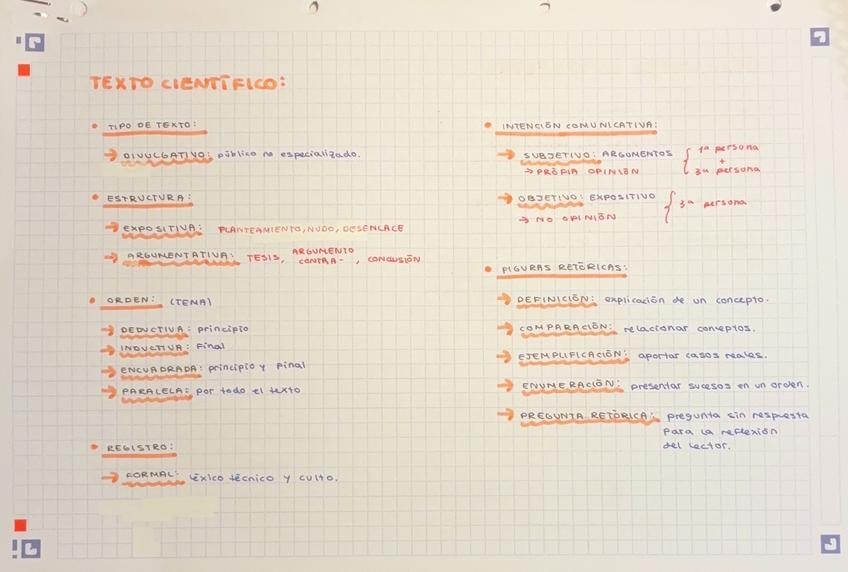 TEXTO CIENTÍFICO:
• TIPO DE TEXTO:
→ DIVULGATIVO: público no especializado.
• ESTRUCTURA:
→ EXPOSITIVA: PLANTEAMIENTO, NUDO, DESENLACE
→ ARGUMENTATIVA: TESIS, ARGUMENTO CONTRA-, CONCLUSIÓN
• ORDEN: (TEMA)
→ DEDUCTIVA: principio
→ INDUCTIVA: Final
→ ENCUADRADA: principio y Final
→ PARALELA: por todo el texto
• REGISTRO:
→ FORMAL: léxico técnico y culto.
• INTENCIÓN COMUNICATIVA:
→ SUBJETIVO: ARGUMENTOS { 1ª persona + 3ª persona
→ PRÓPIA OPINIÓN
→ OBJETIVO: EXPOSITIVO { 3ª persona
→ NO OPINIÓN
• FIGURAS RETÓRICAS:
→ DEFINICIÓN: explicación de un concepto.
→ COMPARACIÓN: relacionar conceptos.
→ EJEMPLIFICACIÓN: aportar casos reales.
→ ENUMERACIÓN: presentar sucesos en un orden.
→ PREGUNTA RETÓRICA: pregunta sin respuesta
para la reflexión
del lector.